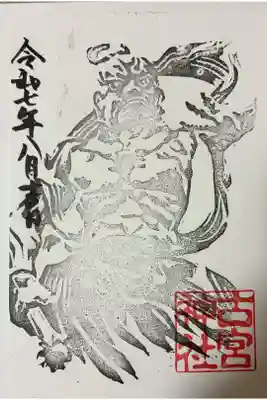 令和七年八月吉日
古宮神社